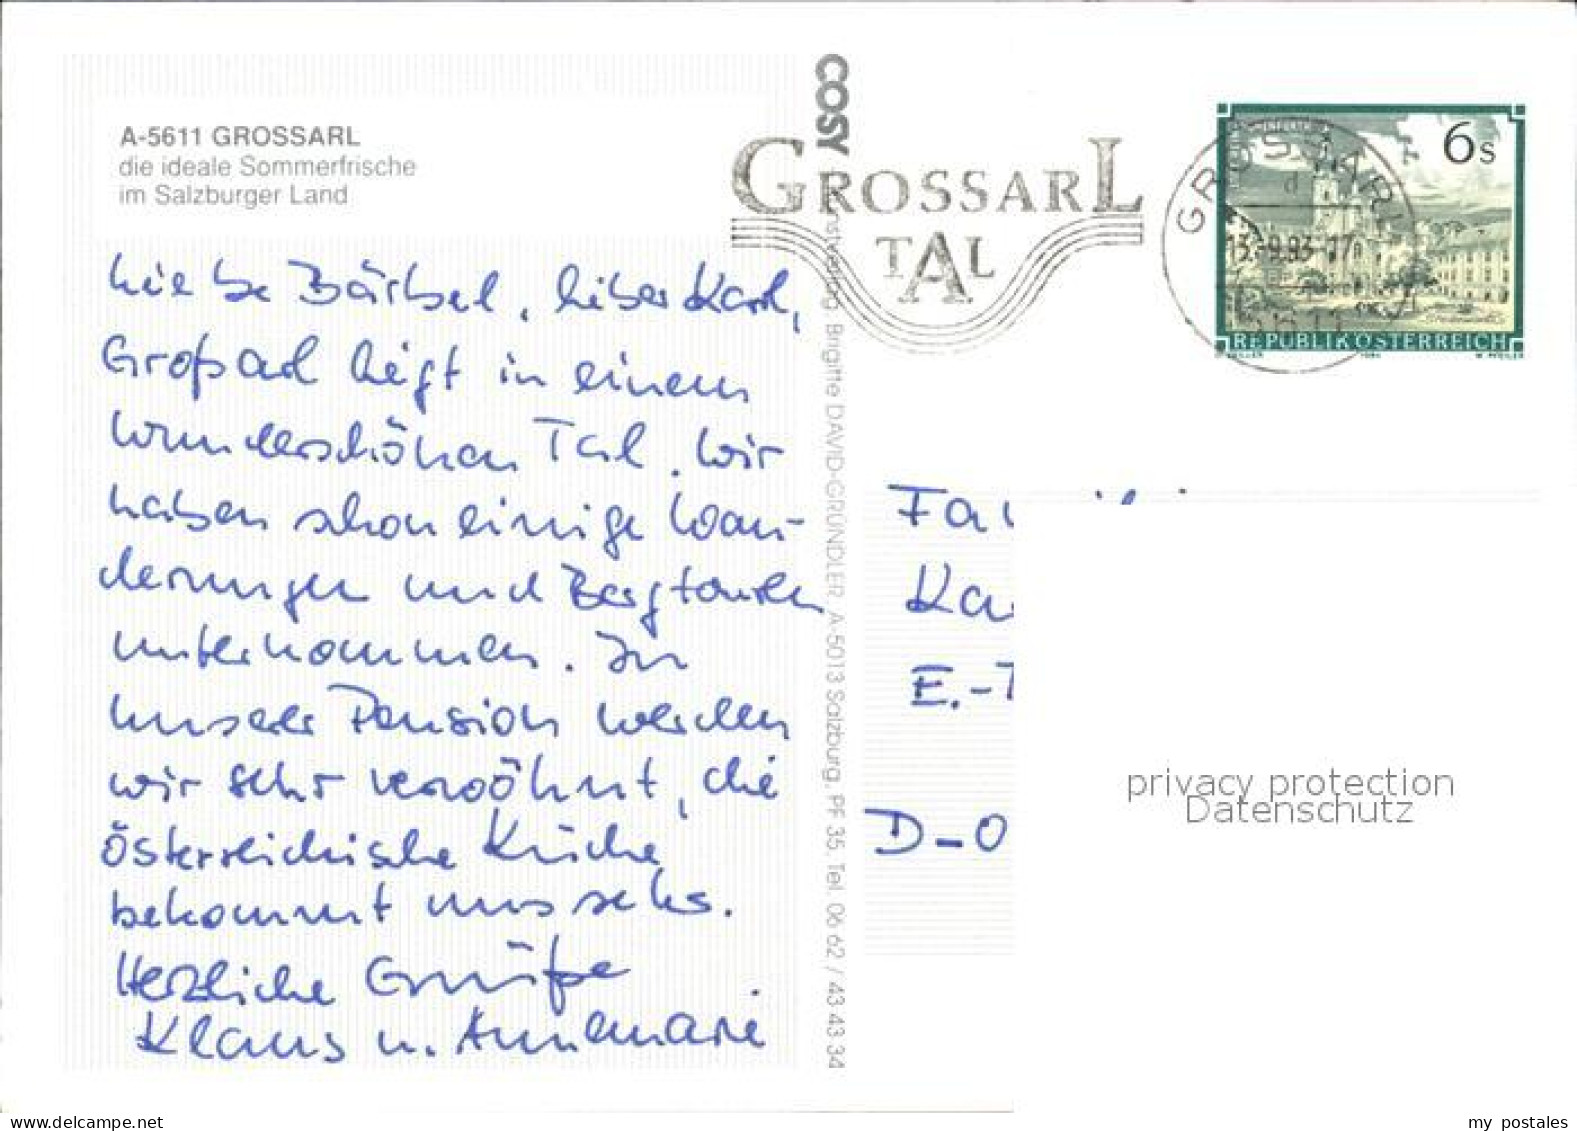 A-5611 GROSSARL
die ideale Sommerfrische
im Salzburger Land
Liebe Bärbel, lieber Karl,
Großarl liegt in einem
wunderschönen Tal. Wir
haben schon einige Wan-
derungen und Bergtouren
unternommen. In
unserer Pension werden
wir sehr verwöhnt, die
österreichische Küche
bekommt uns sehr.
Herzliche Grüße
Klaus u. Annemarie
COSY
Kunstverlag Brigitte DAVID-GRÜNDLER, A-5013 Salzburg, PF 35, Tel. 06 62 / 43 43 34
GROSSARL
TAL
GROSSARL
d
13.-9.93-17
5611
6s
REPUBLIK ÖSTERREICH
1984
W. PFEILER
Fa
Ka
E.-T
D-0
privacy protection
Datenschutz
delcampe.net
my_postales